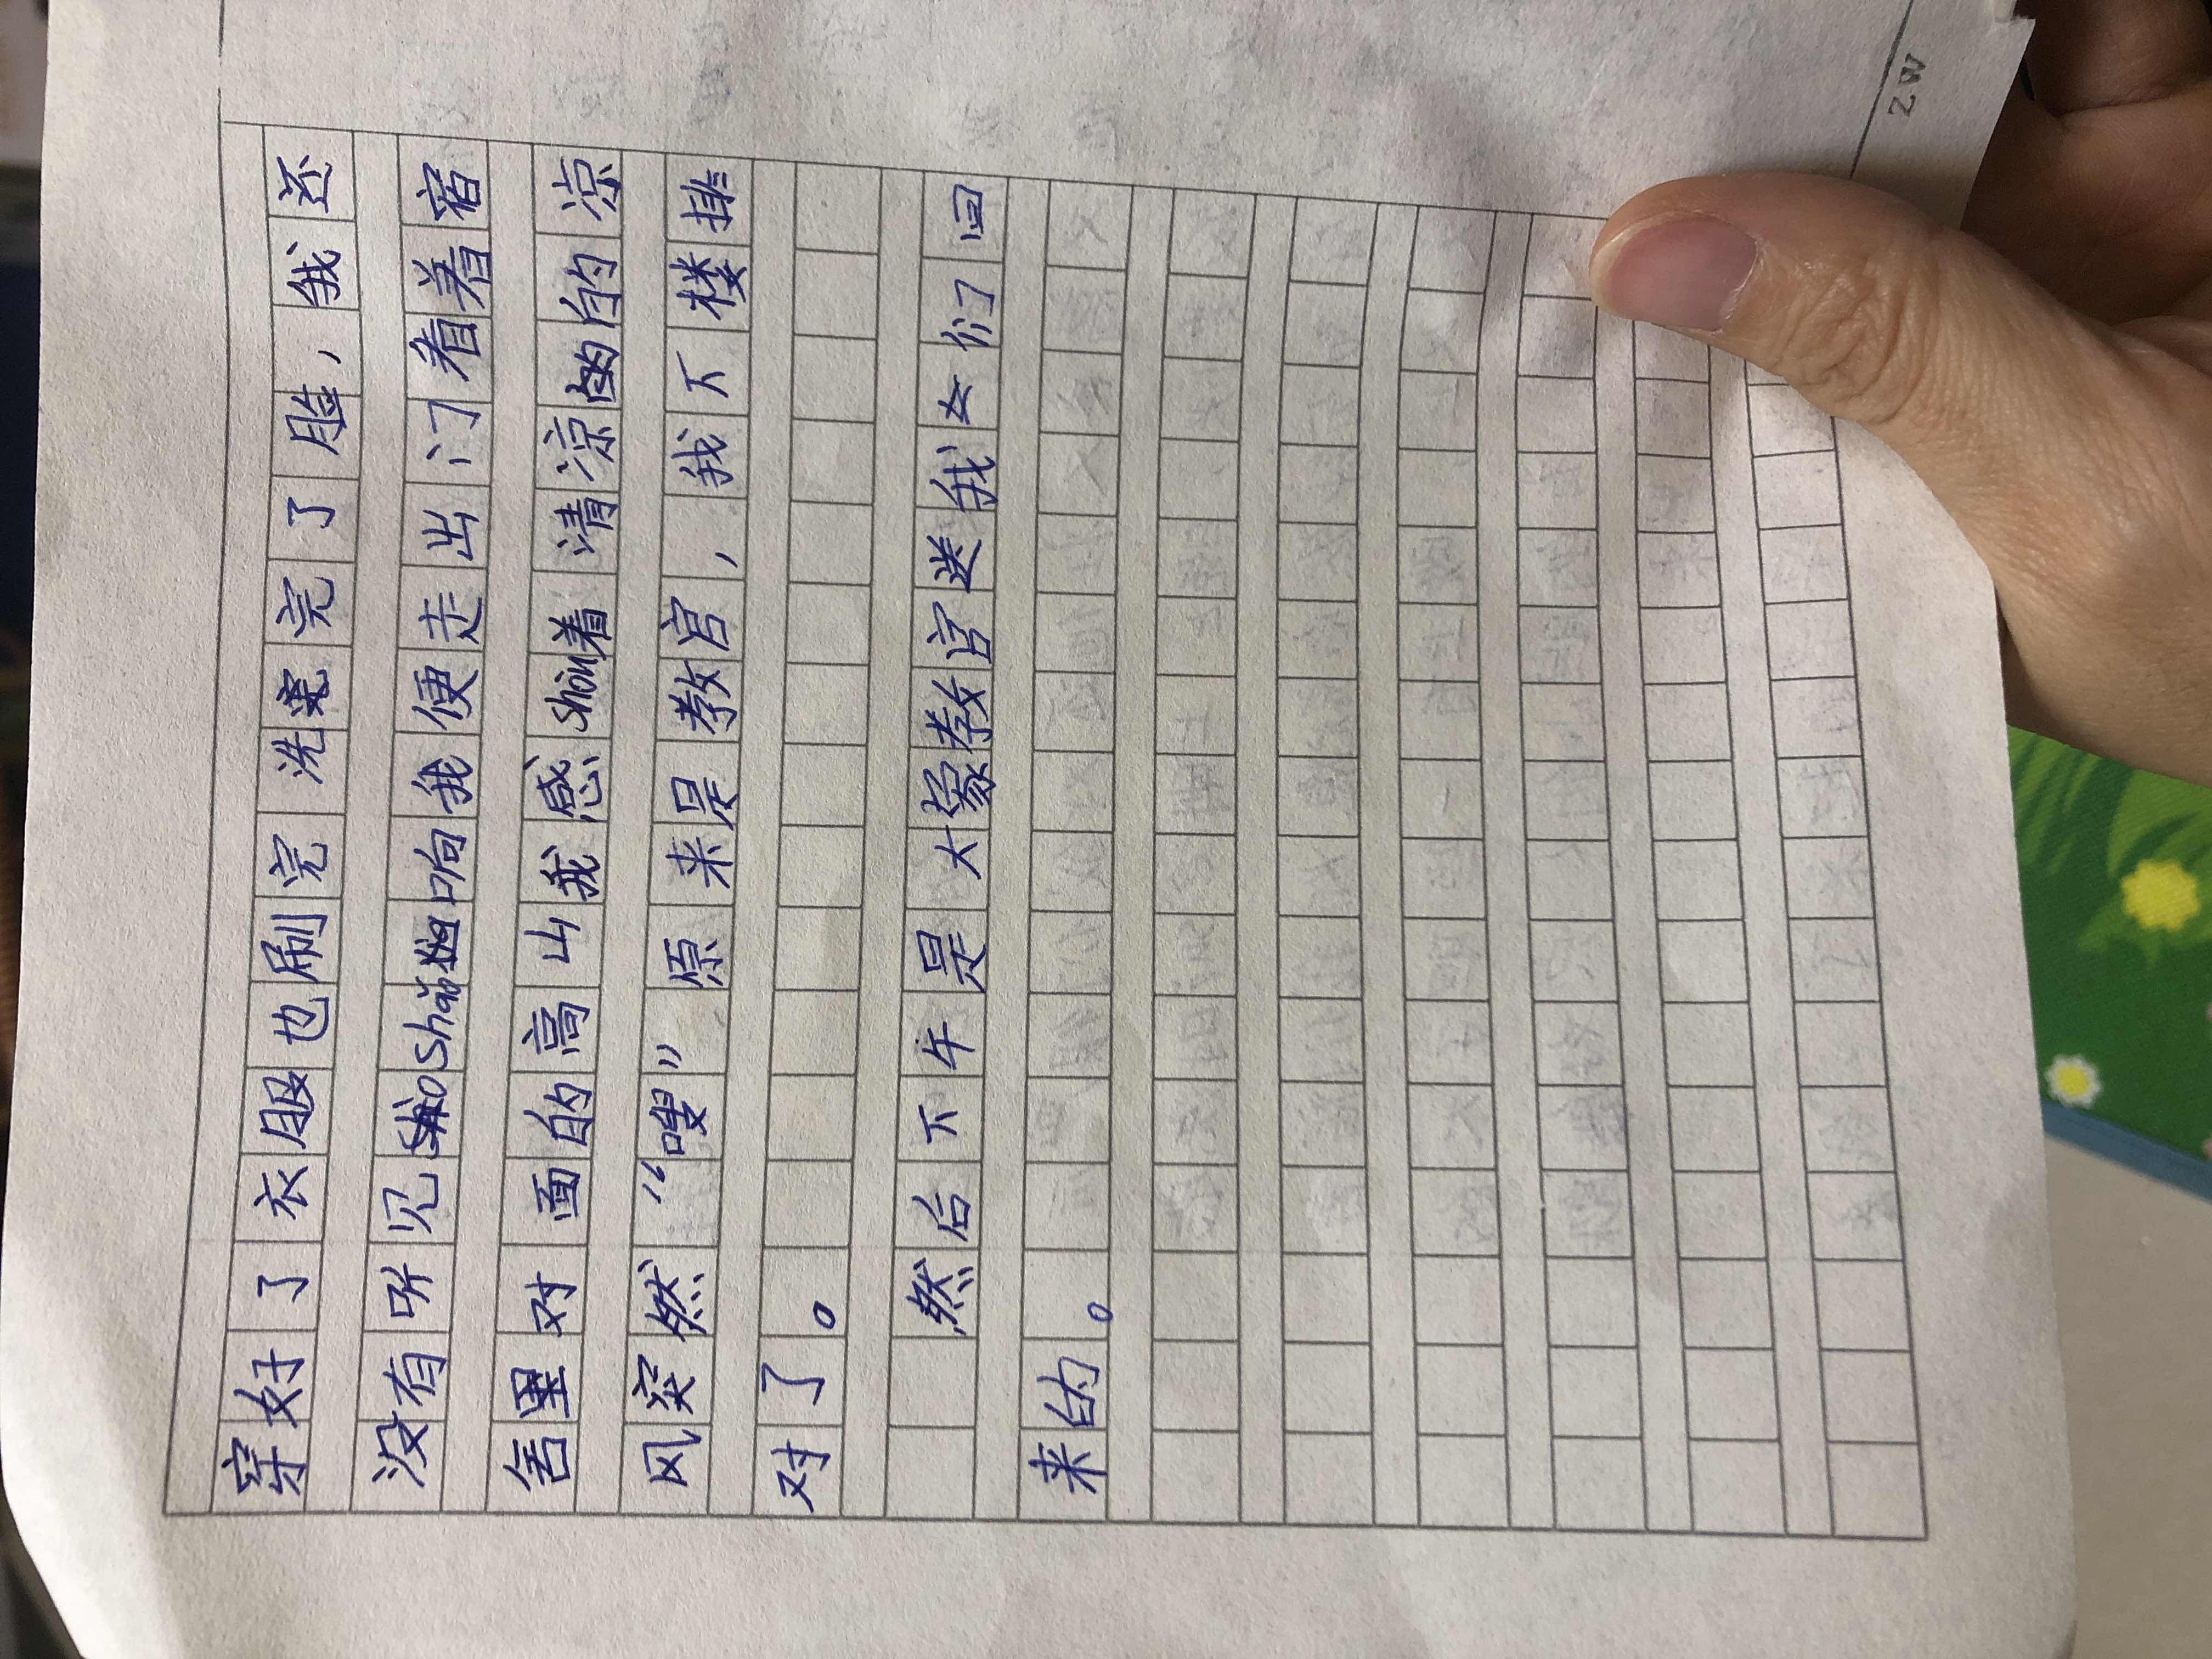 穿好了衣服也刷完洗完了脸，我还
没有听见shào响我便走出门看着宿
舍里对面的高山我感shòu着清凉的的凉
风突然“嗖”原来是教官，我下楼排
对了。
然后下午是大象教官送我们回
来的。
ZW